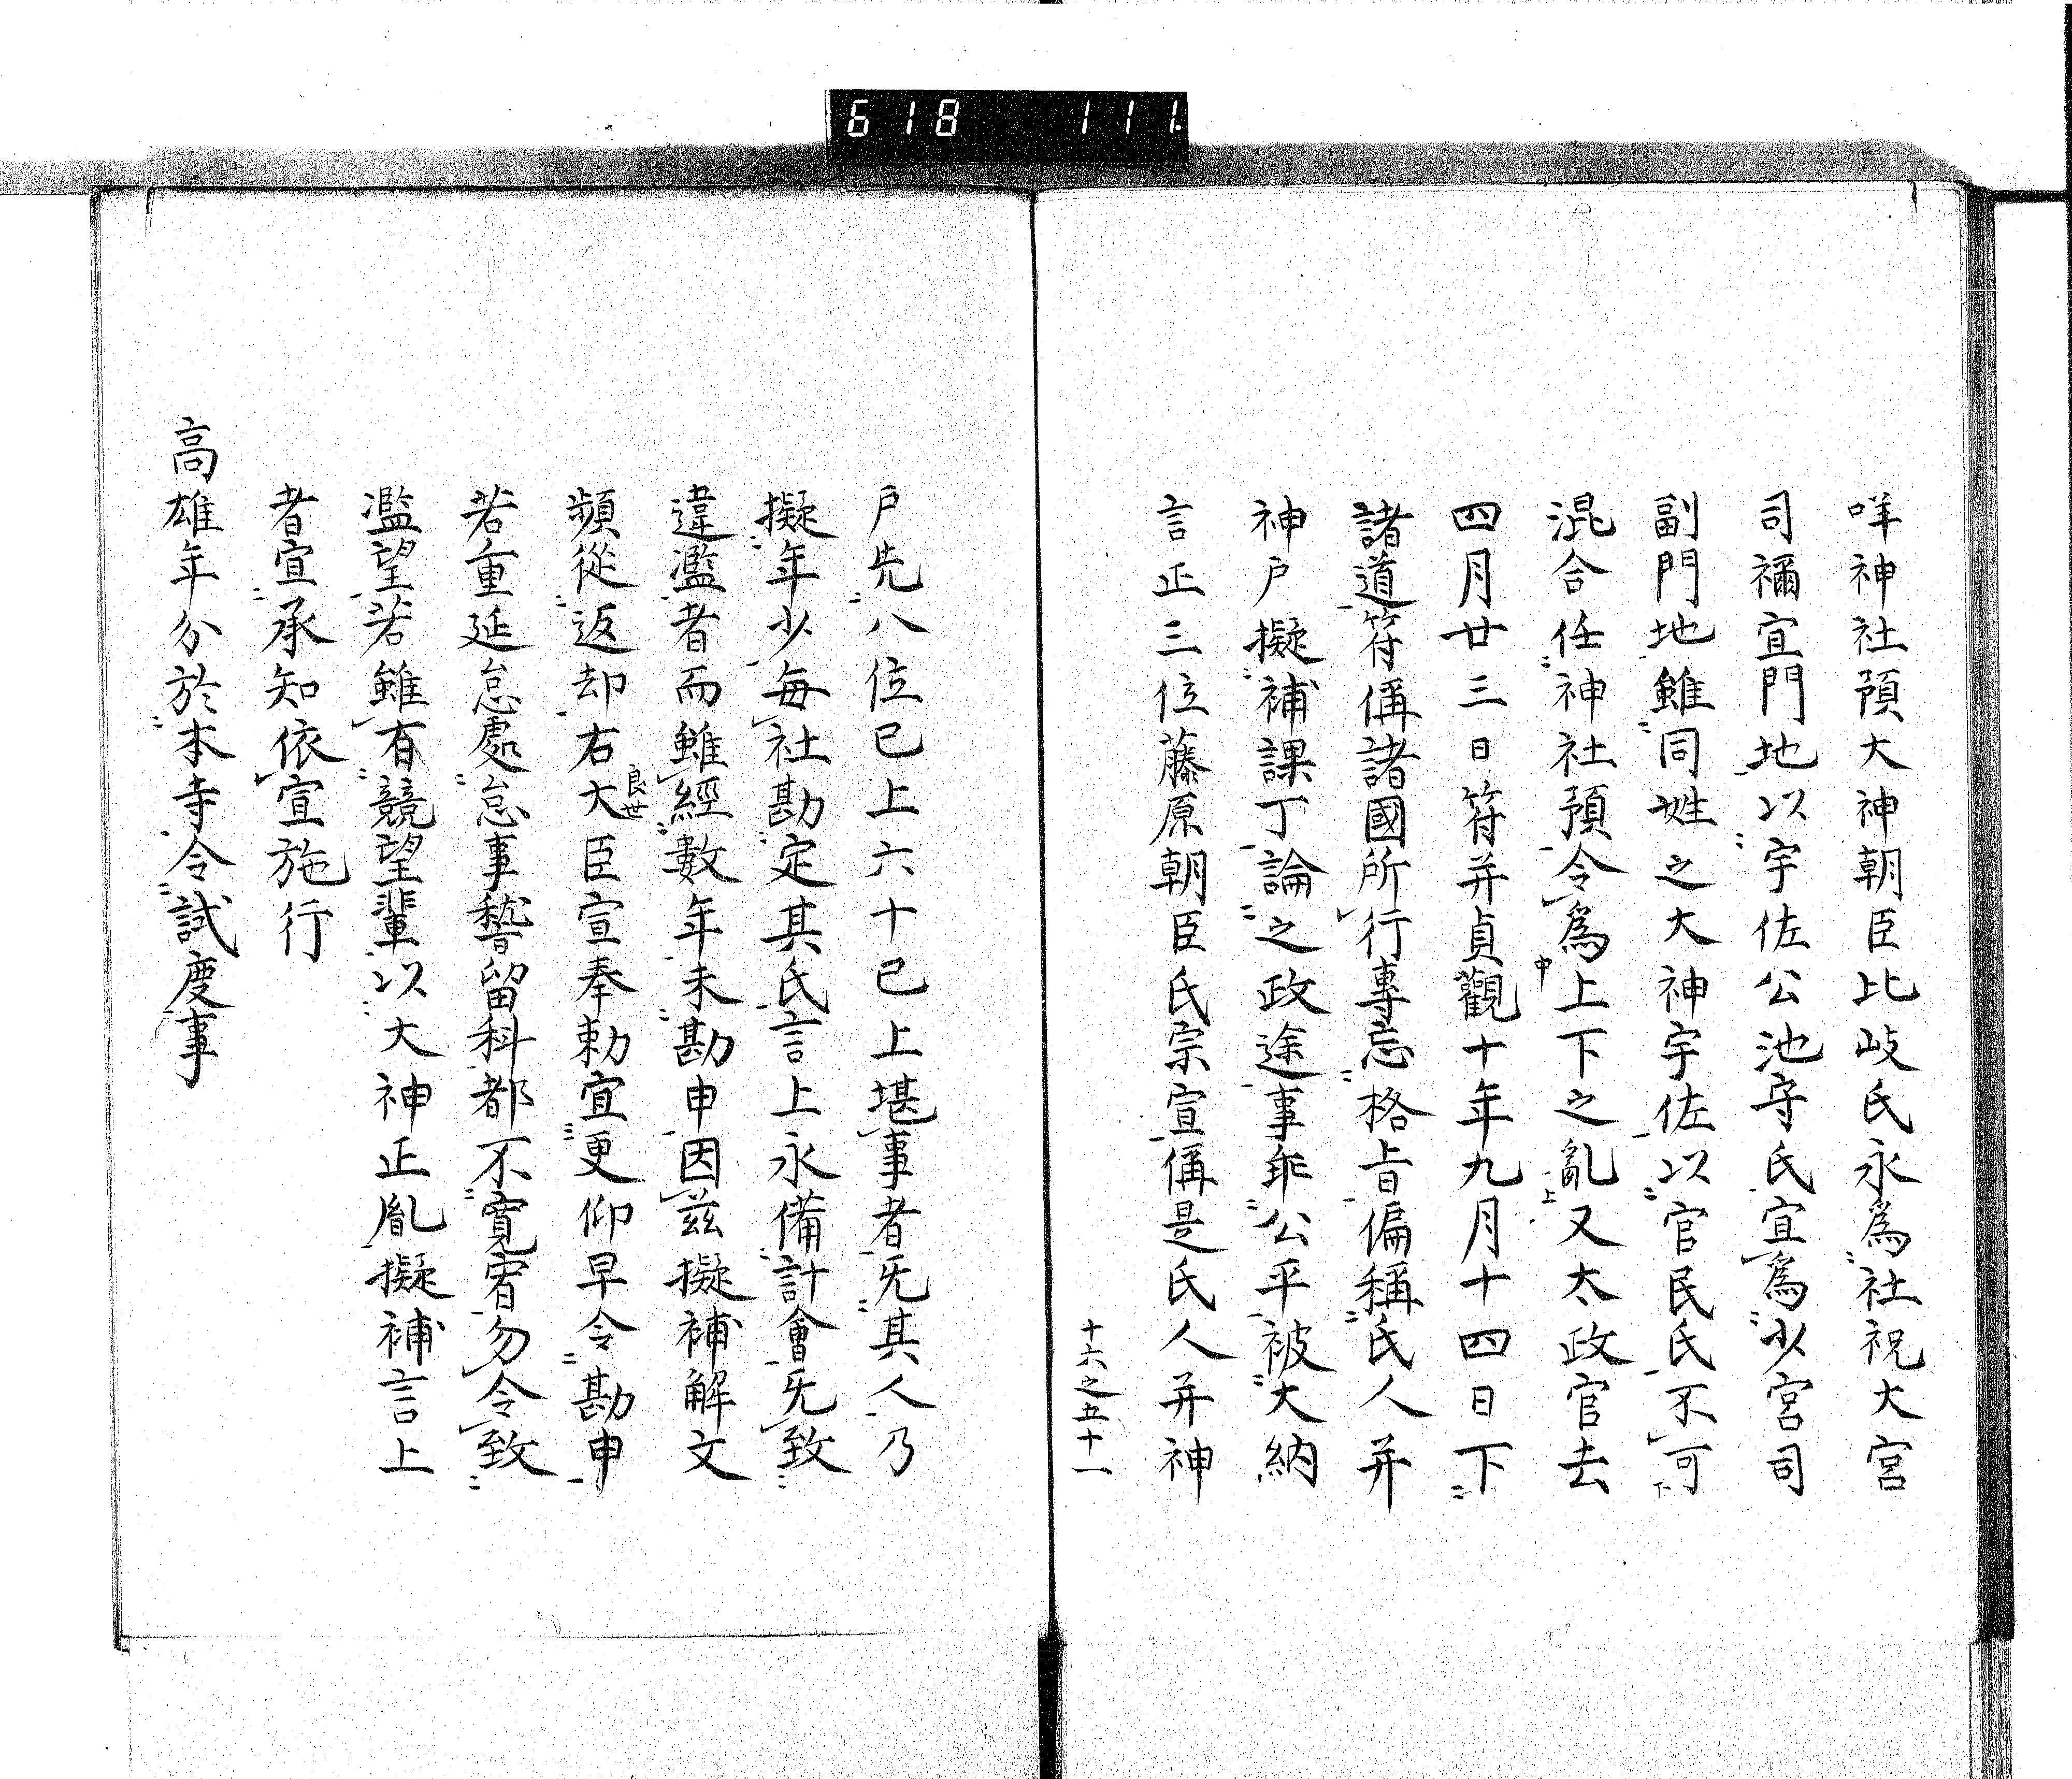 618 111.
咩神社預大神朝臣比岐氏永為社祝大宮
司禰宜門地以宇佐公池守氏宜為少宮司
副門地雖同姓之大神宇佐以官民氏不可下
混合任神社預令為中上下之亂上又太政官去
四月廿三日符并貞觀十年九月十四日下
諸道符偁諸國所行專忘格旨偏稱氏人并
神戶擬補課丁論之政途事乖公平被大納
言正三位藤原朝臣氏宗宣偁是氏人并神
十六之五十一
戶先八位已上六十已上堪事者旡其人乃
擬年少每社勘定其氏言上永備計會旡致
違濫者而雖經數年未勘申因茲擬補解文
頻從返却右大臣良世宣奉勅宜更仰早令勘申
若重延怠處怠事稽留科都不寬宥勿令致
濫望若雖有競望輩以大神正胤擬補言上
者宣承知依宣施行
高雄年分於本寺令試度事